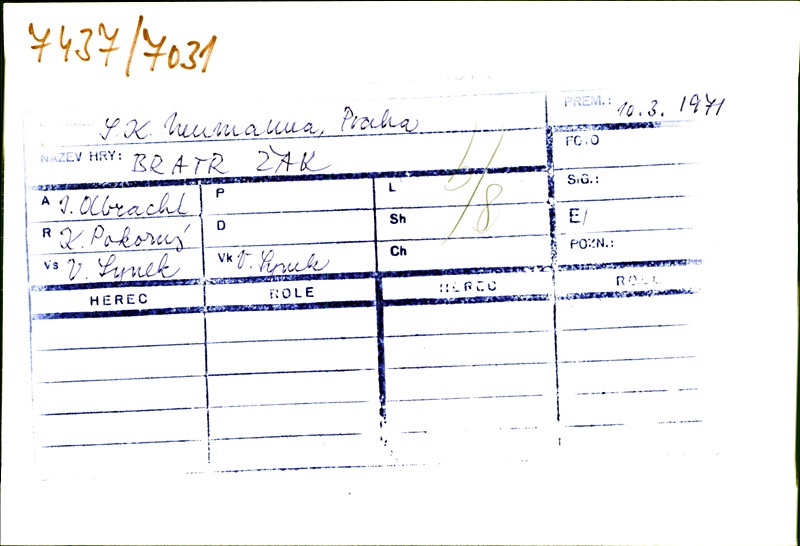 7437/7031
S. K. Neumanna, Praha PREM.: 10.3. 1971
NÁZEV HRY: BRATR ŽAK FOTO
A I. Olbracht P L SIG.:
R K. Pokorný D Sh E/
Vs V. Synek Vk V. Synek Ch POZN.:
6/8
HEREC ROLE HEREC ROLE